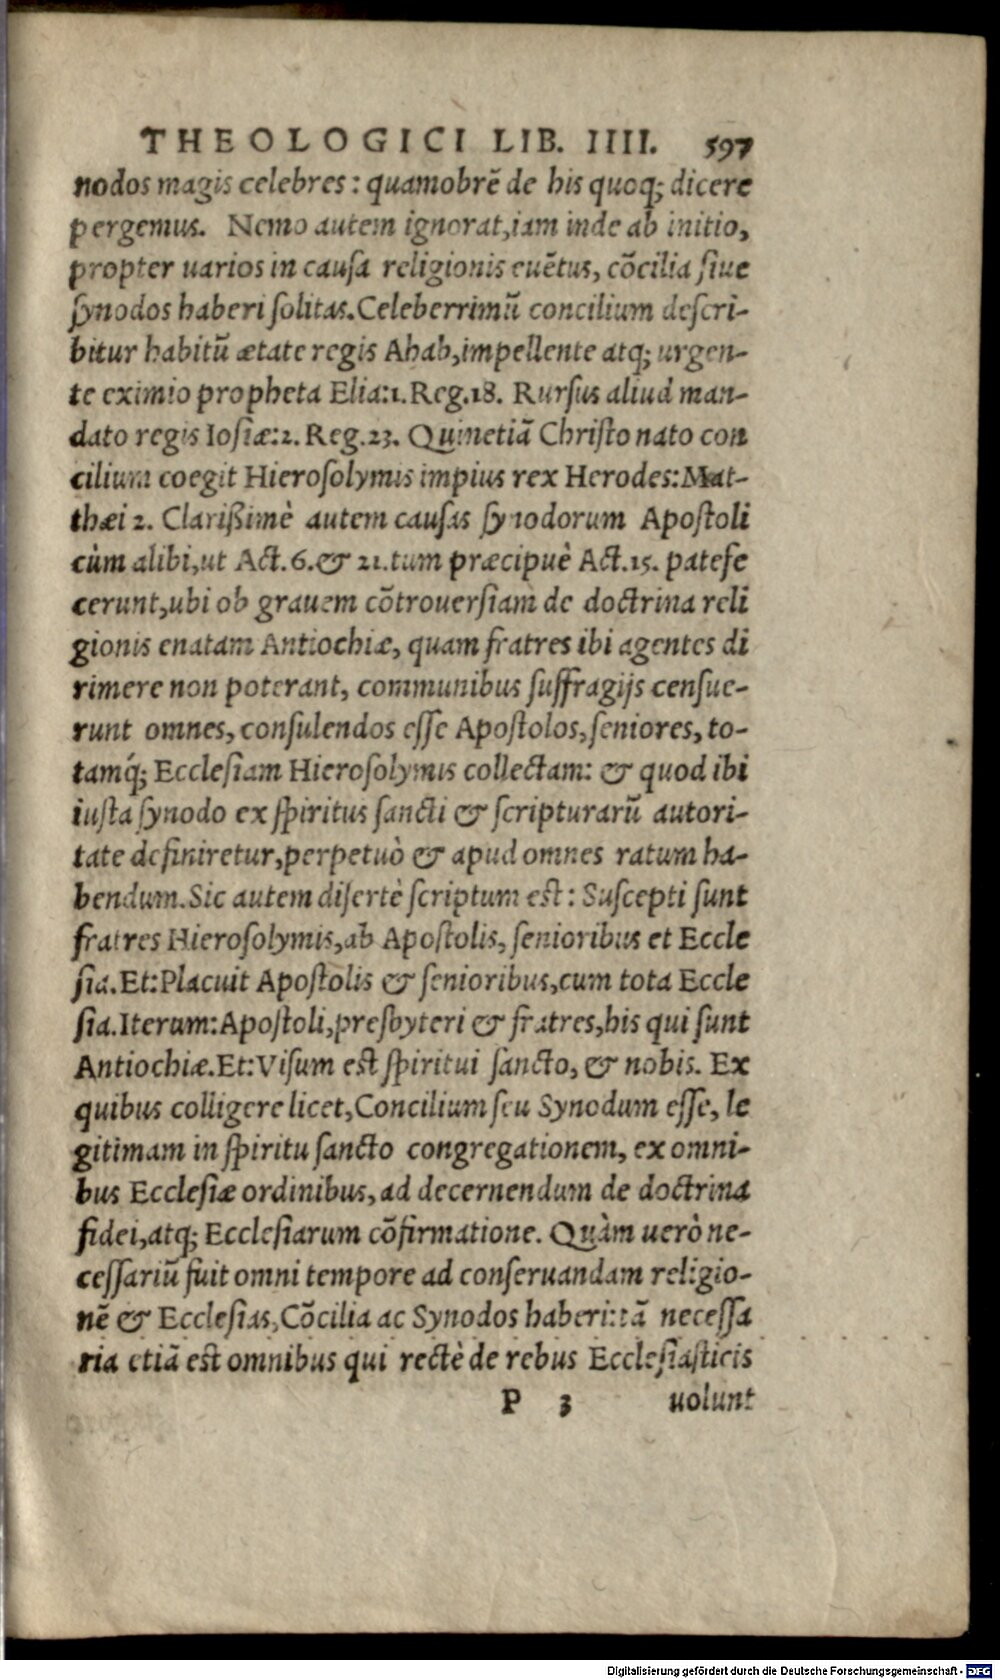 THEOLOGICI LIB. IIII. 597
nodos magis celebres: quamobrẽ de his quoq; dicere
pergemus. Nemo autem ignorat, iam inde ab initio,
propter uarios in causa religionis euẽtus, cõcilia siue
synodos haberi solitas. Celeberrimũ concilium descri-
bitur habitũ ætate regis Ahab, impellente atq; urgen-
te eximio propheta Elia: 1. Reg. 18. Rursus aliud man-
dato regis Iosiæ: 2. Reg. 23. Quinetiã Christo nato con
cilium coegit Hierosolymis impius rex Herodes: Mat-
thæi 2. Clarißimè autem causas synodorum Apostoli
cùm alibi, ut Act. 6. & 21. tum præcipuè Act. 15. patefe
cerunt, ubi ob grauem cõtrouersiam de doctrina reli
gionis enatam Antiochiæ, quam fratres ibi agentes di
rimere non poterant, communibus suffragijs censue-
runt omnes, consulendos esse Apostolos, seniores, to-
tamq́; Ecclesiam Hierosolymis collectam: & quod ibi
iusta synodo ex spiritus sancti & scripturarũ autori-
tate definiretur, perpetuò & apud omnes ratum ha-
bendum. Sic autem disertè scriptum est: Suscepti sunt
fratres Hierosolymis, ab Apostolis, senioribus et Eccle
sia. Et: Placuit Apostolis & senioribus, cum tota Eccle
sia. Iterum: Apostoli, presbyteri & fratres, his qui sunt
Antiochiæ. Et: Visum est spiritui sancto, & nobis. Ex
quibus colligere licet, Concilium seu Synodum esse, le
gitimam in spiritu sancto congregationem, ex omni-
bus Ecclesiæ ordinibus, ad decernendum de doctrina
fidei, atq; Ecclesiarum cõfirmatione. Quàm uerò ne-
cessariũ fuit omni tempore ad conseruandam religio-
nẽ & Ecclesias, Cõcilia ac Synodos haberi: tã necessa
ria etiã est omnibus qui rectè de rebus Ecclesiasticis
P 3 uolunt
Digitalisierung gefördert durch die Deutsche Forschungsgemeinschaft - DFG